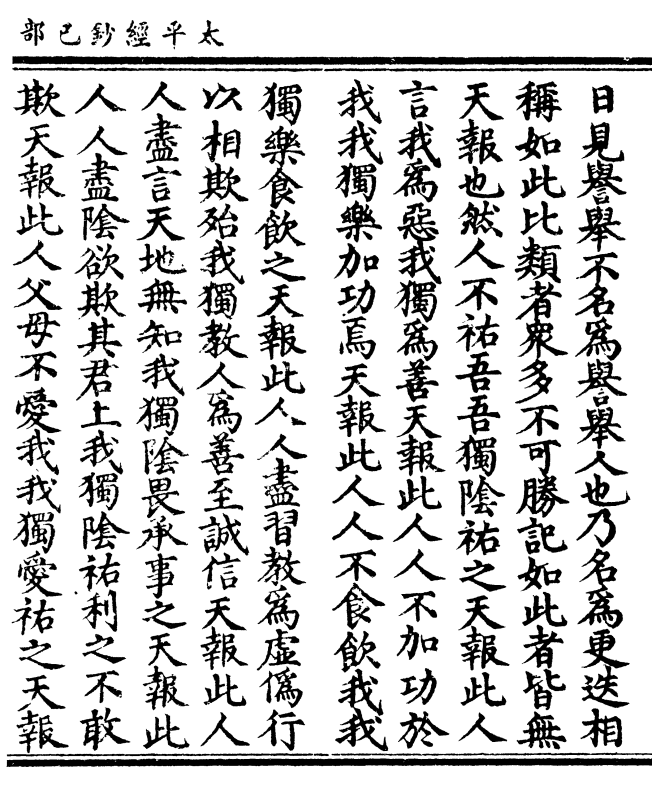 太平經鈔己部
日見譽舉不名為譽舉人也乃名為更迭相
稱如此比類者衆多不可勝記如此者皆無
天報也然人不祐吾吾獨陰祐之天報此人
言我為惡我獨為善天報此人人不加功於
我我獨樂加功焉天報此人人不食飲我我
獨樂食飲之天報此人人盡習教為虛偽行
以相欺殆我獨教人為善至誠信天報此人
人盡言天地無知我獨陰畏承事之天報此
人人盡陰欲欺其君上我獨陰祐利之不敢
欺天報此人父母不愛我我獨愛祐之天報